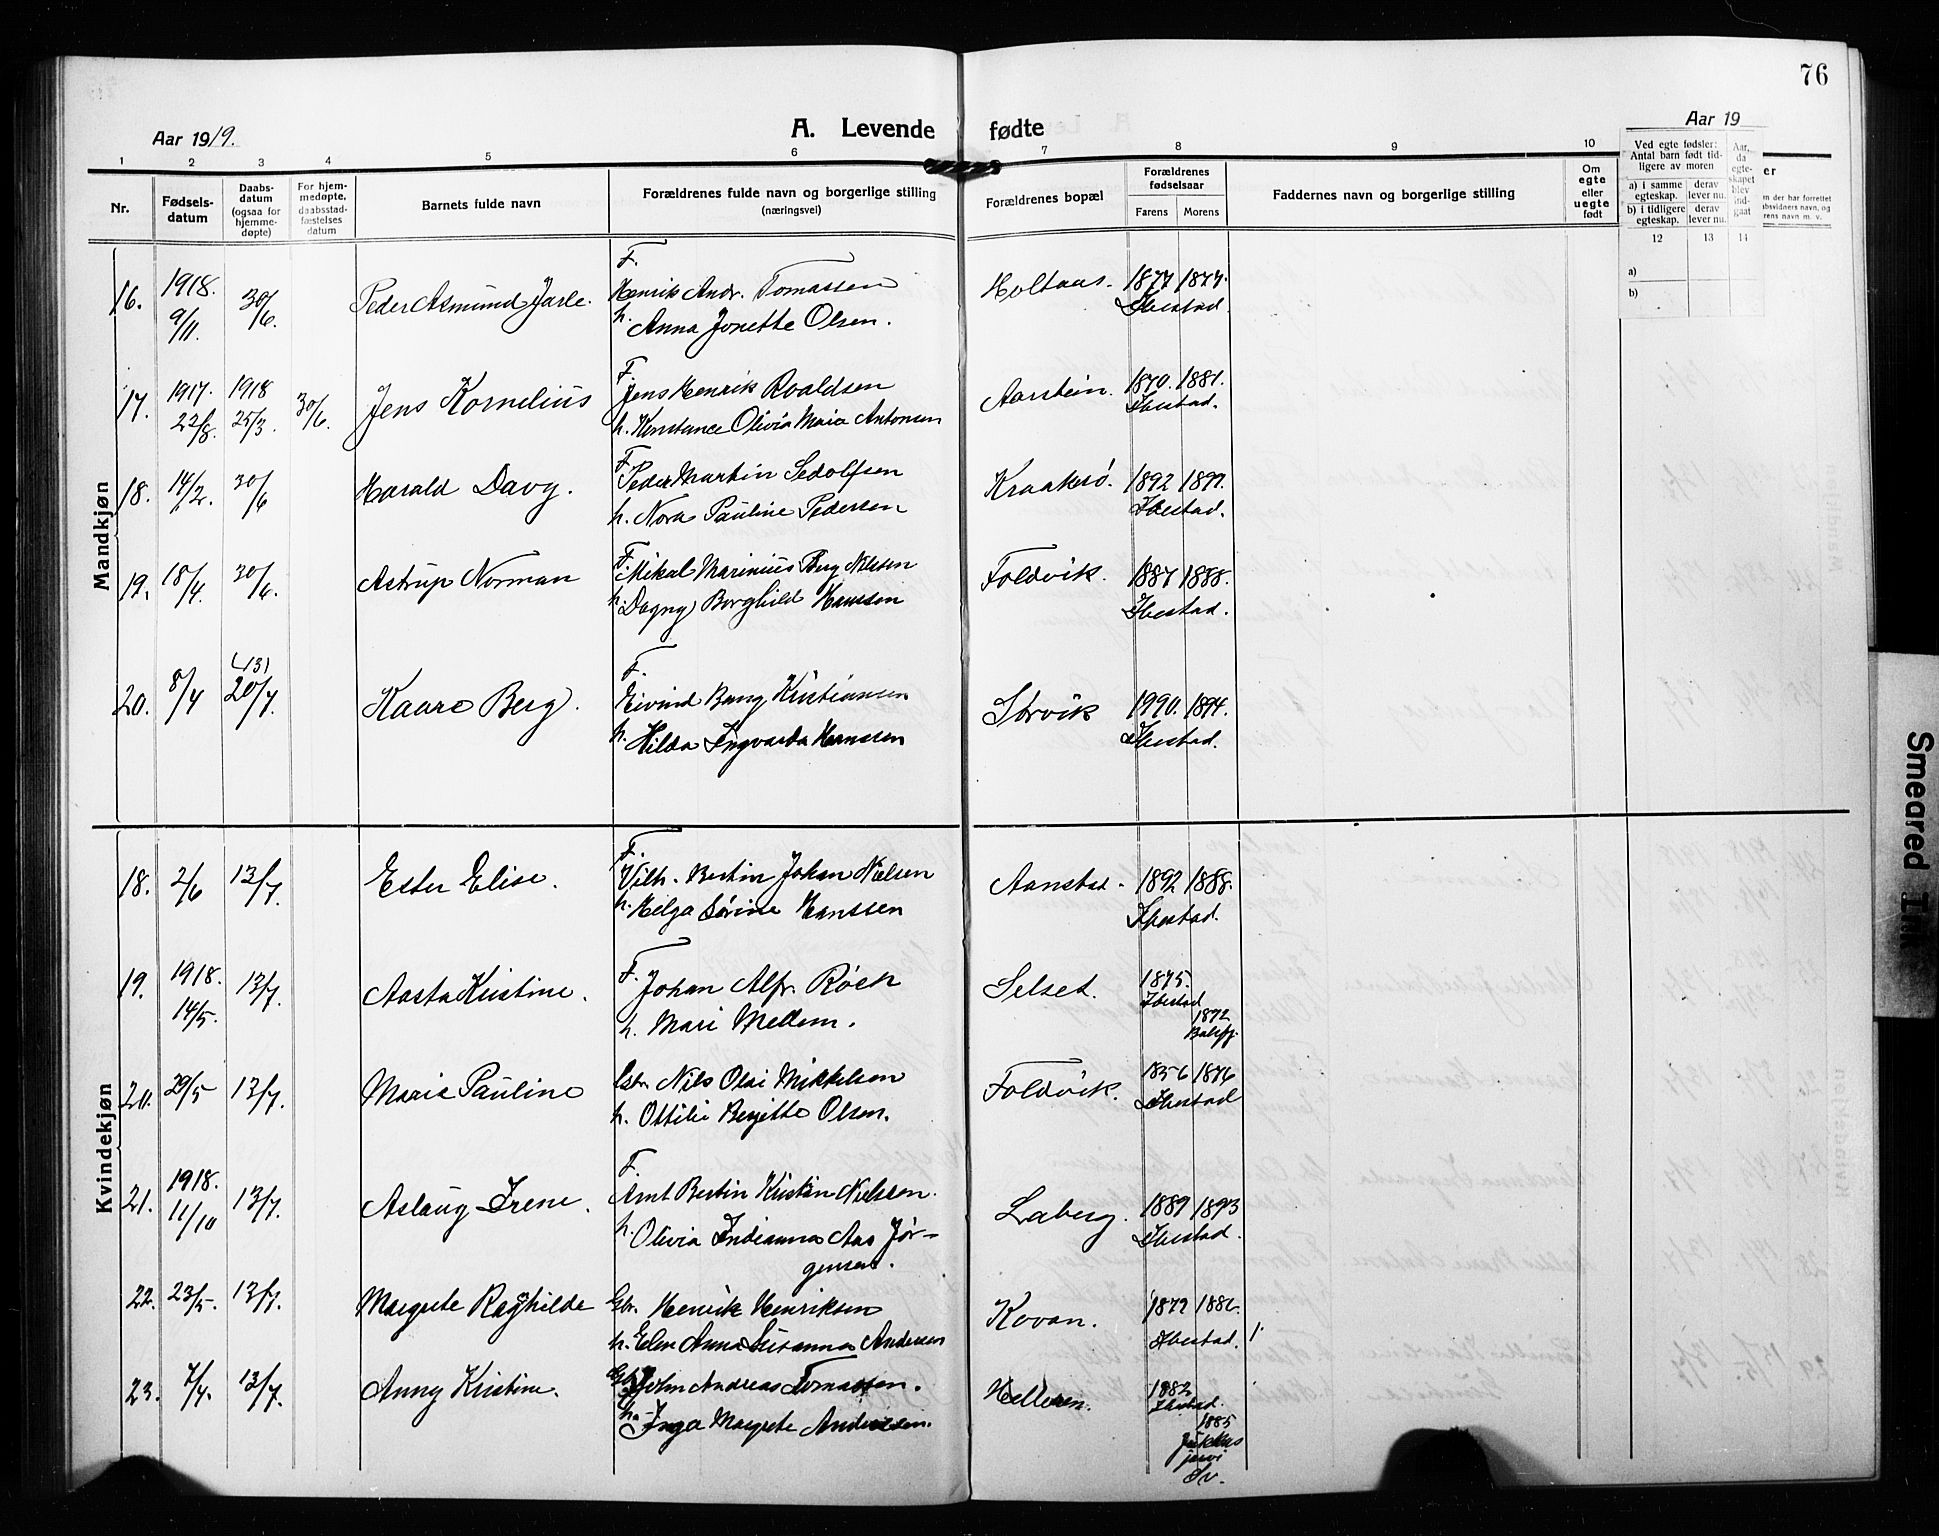 76
Aar 1919.
A. Levende fødte
Aar 19
1 2 3 4 5 6 7 8 9 10
Nr.
Fødsels-
datum
Daabs-
datum
(ogsaa for
hjemme-
døpte)
For hjem-
medøpte,
daabsstad-
fæstelses
datum
Barnets fulde navn
Forældrenes fulde navn og borgerlige stilling
(næringsvei)
Forældrenes bopæl
Forældrenes
fødselsaar
Farens Morens
Faddernes navn og borgerlige stilling
Om
egte
eller
uegte
født
Ved egte fødsler:
Antal barn født tid-
ligere av moren
a) i samme
egteskap.
derav
lever nu.
b) i tidligere
egteskap.
derav
lever nu.
Aar,
da
egte-
skapet
blev
ind-
gaat
12 13 14
a)
b)
er
m der har forrettet
absvidners navn, og
rens navn m. v.
Mandkjøn
16. 1918. 9/11. 30/6. Peder Asmund Jarle.
F.
Henrik Andr. Tomassen
h. Anna Jonette Olsen.
Holtaas. 1877 1877.
Ibestad.
17. 1917. 22/8. 1918 25/3. 30/6. Jens Kornelius
F.
Jens Henrik Roaldsen
h. Konstance Olivia Maria Antonsen
Aarstein. 1870. 1881.
Ibestad.
18. 14/2. 30/6 Harald Davy.
F. Peder Martin Sedolfsen
h. Nora Pauline Pedersen
Kraakerø. 1892 1899.
Ibestad.
19. 18/4. 30/6. Astrup Norman
F. Mikal Marinius Berg Nilssen
h. Dagny Borghild Hanssen
Foldvik. 1887 1888.
Ibestad.
20. 8/4 (13) 20/7. Kaare Berg.
F.
Eivind Bang Kristiansen
h. Hilda Ingvarda Hanssen
Storvik 1990. 1894.
Ibestad.
Kvindekjøn
18. 2/6 13/7. Ester Elise.
F.
Vilh. Bertin Johan Nielsen
h. Helga Sørine Hanssen
Aanstad. 1892 1888.
Ibestad.
19. 1918. 14/5. 13/7. Aasta Kristine.
F. Johan Alfr. Röck
h. Mari Mellem.
Selset. 1875.
Ibestad
1892
Balsfj.
20. 29/5 13/7. Marie Pauline
Nils Olai Mikkelsen
h. Ottilie Bergitte Olsen.
Foldvik. 1856 1876
Ibestad
21. 1918. 11/10 13/7. Aslaug Irene.
F.
Arnt Bertin Kristian Nielssen.
h. Olivia Indianna Aas Jør-
gensen.
Laberg. 1889 1893
Ibestad.
22. 23/5. 13/7. Margrete Raghilde
Gbr. Henrik Henriksen
h. Elen Anna Susanna Andersen
Kovan. 1879 1886.
Ibestad. 1.
23. 7/4. 13/7. Anny Kristine.
Gbr. John Andreas Tomassen.
h. Inga Margrete Anderssen.
Helleren. 1882
Ibestad.
1885
Jukkas
jarvi
Sv.
Smeared Ink